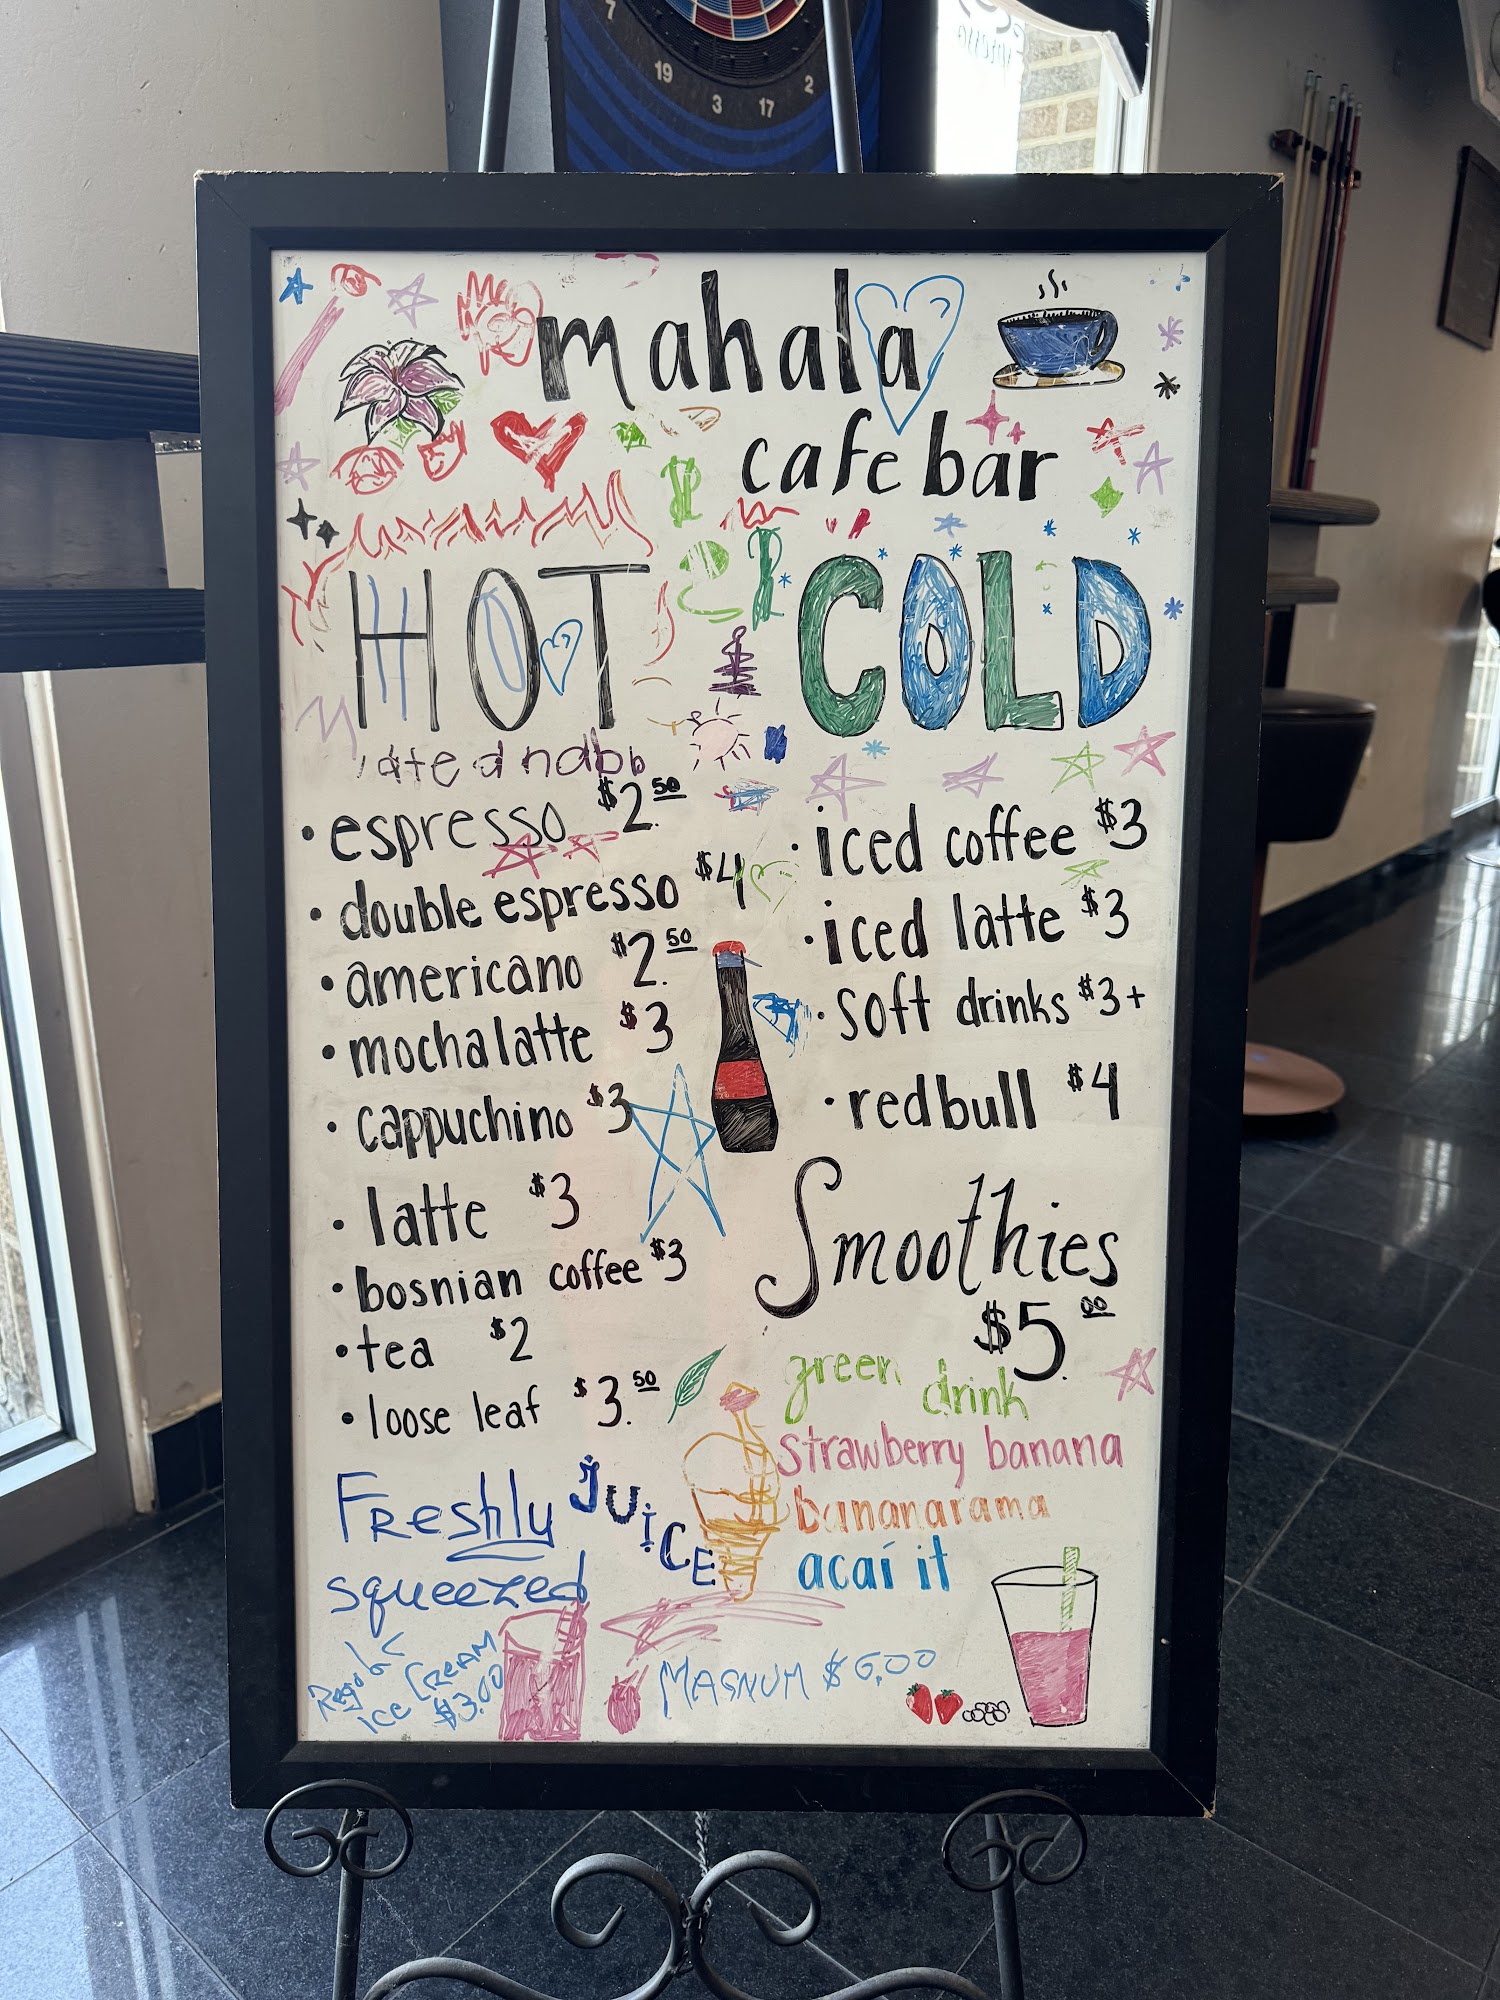 7
19
3
17
2
mahala
cafe bar
HOT
COLD
espresso $2.50
double espresso $4
americano $2.50
mocha latte $3
cappuchino $3
latte $3
bosnian coffee $3
tea $2
loose leaf $3.50
iced coffee $3
iced latte $3
soft drinks $3+
redbull $4
Smoothies
$5.00
green drink
strawberry banana
bananarama
acaí it
Freshly
squeezed
JUiCE
ice CREAM
$3.00
MAGNUM $6.00